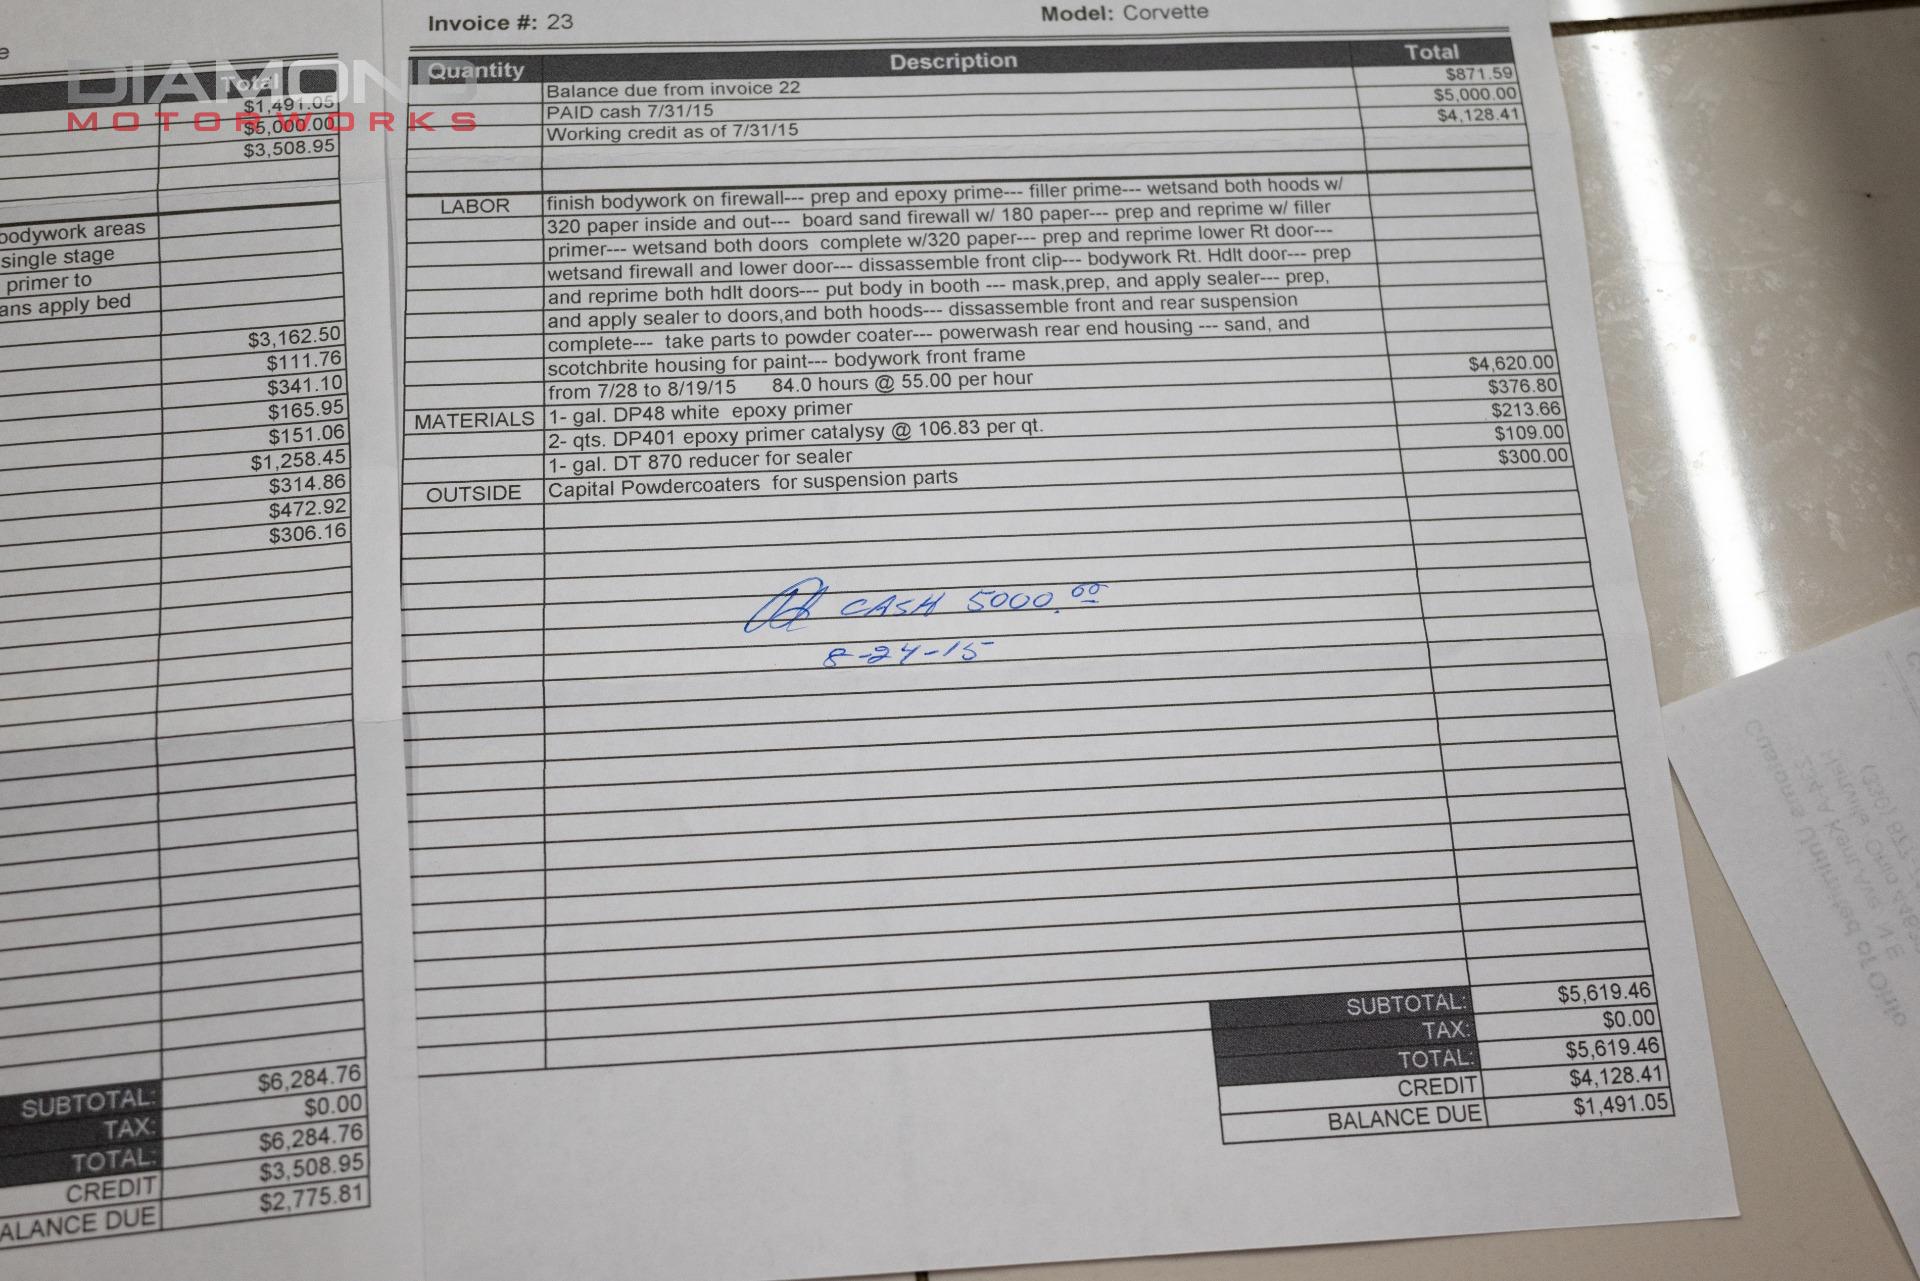 Invoice #: 23 Model: Corvette
Quantity Description Total
Balance due from invoice 22 $871.59
PAID cash 7/31/15 $5,000.00
Working credit as of 7/31/15 $4,128.41
LABOR finish bodywork on firewall--- prep and epoxy prime--- filler prime--- wetsand both hoods w/
320 paper inside and out--- board sand firewall w/ 180 paper--- prep and reprime w/ filler
primer--- wetsand both doors complete w/320 paper--- prep and reprime lower Rt door---
wetsand firewall and lower door--- dissassemble front clip--- bodywork Rt. Hdlt door--- prep
and reprime both hdlt doors--- put body in booth --- mask,prep, and apply sealer--- prep,
and apply sealer to doors,and both hoods--- dissassemble front and rear suspension
complete--- take parts to powder coater--- powerwash rear end housing --- sand, and
scotchbrite housing for paint--- bodywork front frame
from 7/28 to 8/19/15 84.0 hours @ 55.00 per hour $4,620.00
MATERIALS 1- gal. DP48 white epoxy primer $376.80
2- qts. DP401 epoxy primer catalysy @ 106.83 per qt. $213.66
1- gal. DT 870 reducer for sealer $109.00
OUTSIDE Capital Powdercoaters for suspension parts $300.00
CASH 5000.00
8-24-15
SUBTOTAL: $5,619.46
TAX: $0.00
TOTAL: $5,619.46
CREDIT $4,128.41
BALANCE DUE $1,491.05
DIAMOND
MOTORWORKS
Total
$1,491.05
$5,000.00
$3,508.95
bodywork areas
single stage
primer to
ans apply bed
$3,162.50
$111.76
$341.10
$165.95
$151.06
$1,258.45
$314.86
$472.92
$306.16
SUBTOTAL: $6,284.76
TAX: $0.00
TOTAL: $6,284.76
CREDIT $3,508.95
ALANCE DUE $2,775.81
Customs Unlimited of Ohio